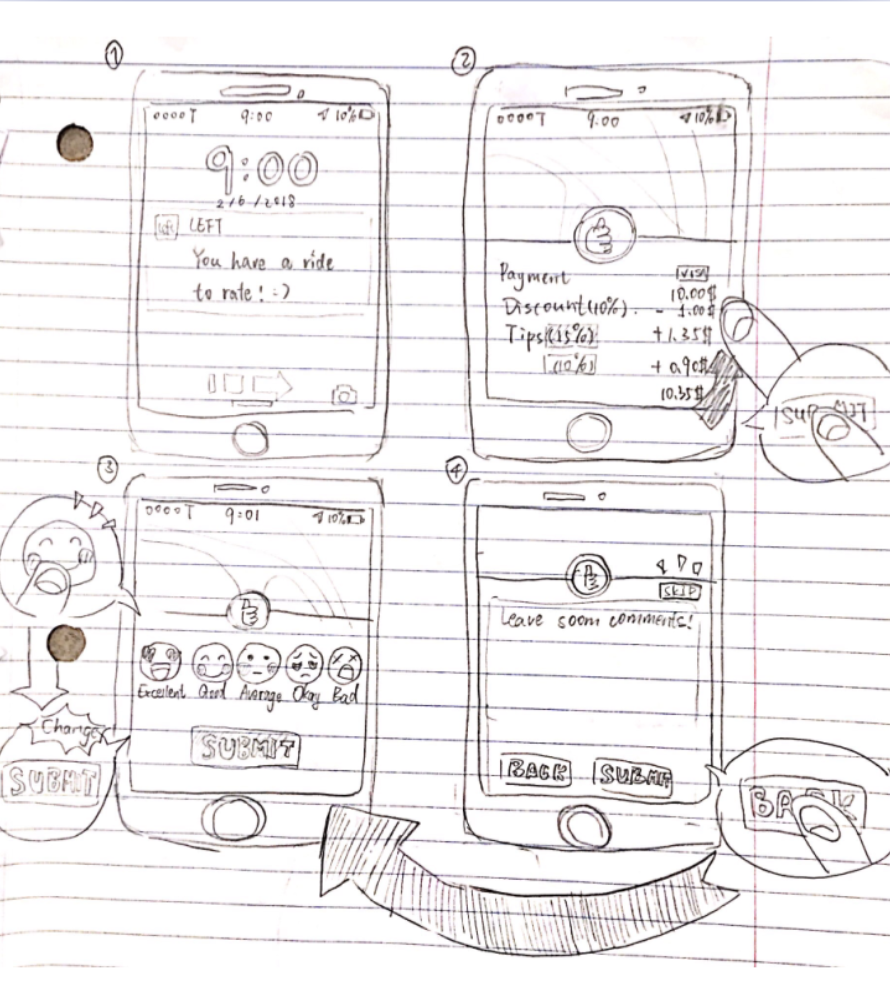 ①
oooo T 9:00 10%
9:00
2/6/2018
left LEFT
You have a ride
to rate! :-)
②
oooo T 9:00 10%
Payment VISA
10.00$
Discount(10%). - 1.00$
Tips(15%) +1.35$
(10%) + 0.90$
10.35$
SUBMIT
③
oooo T 9:01 10%
Excellent Good Average Okay Bad
SUBMIT
Change!
SUBMIT
④
SKIP
Leave soom comments!
BACK SUBMIT
BACK